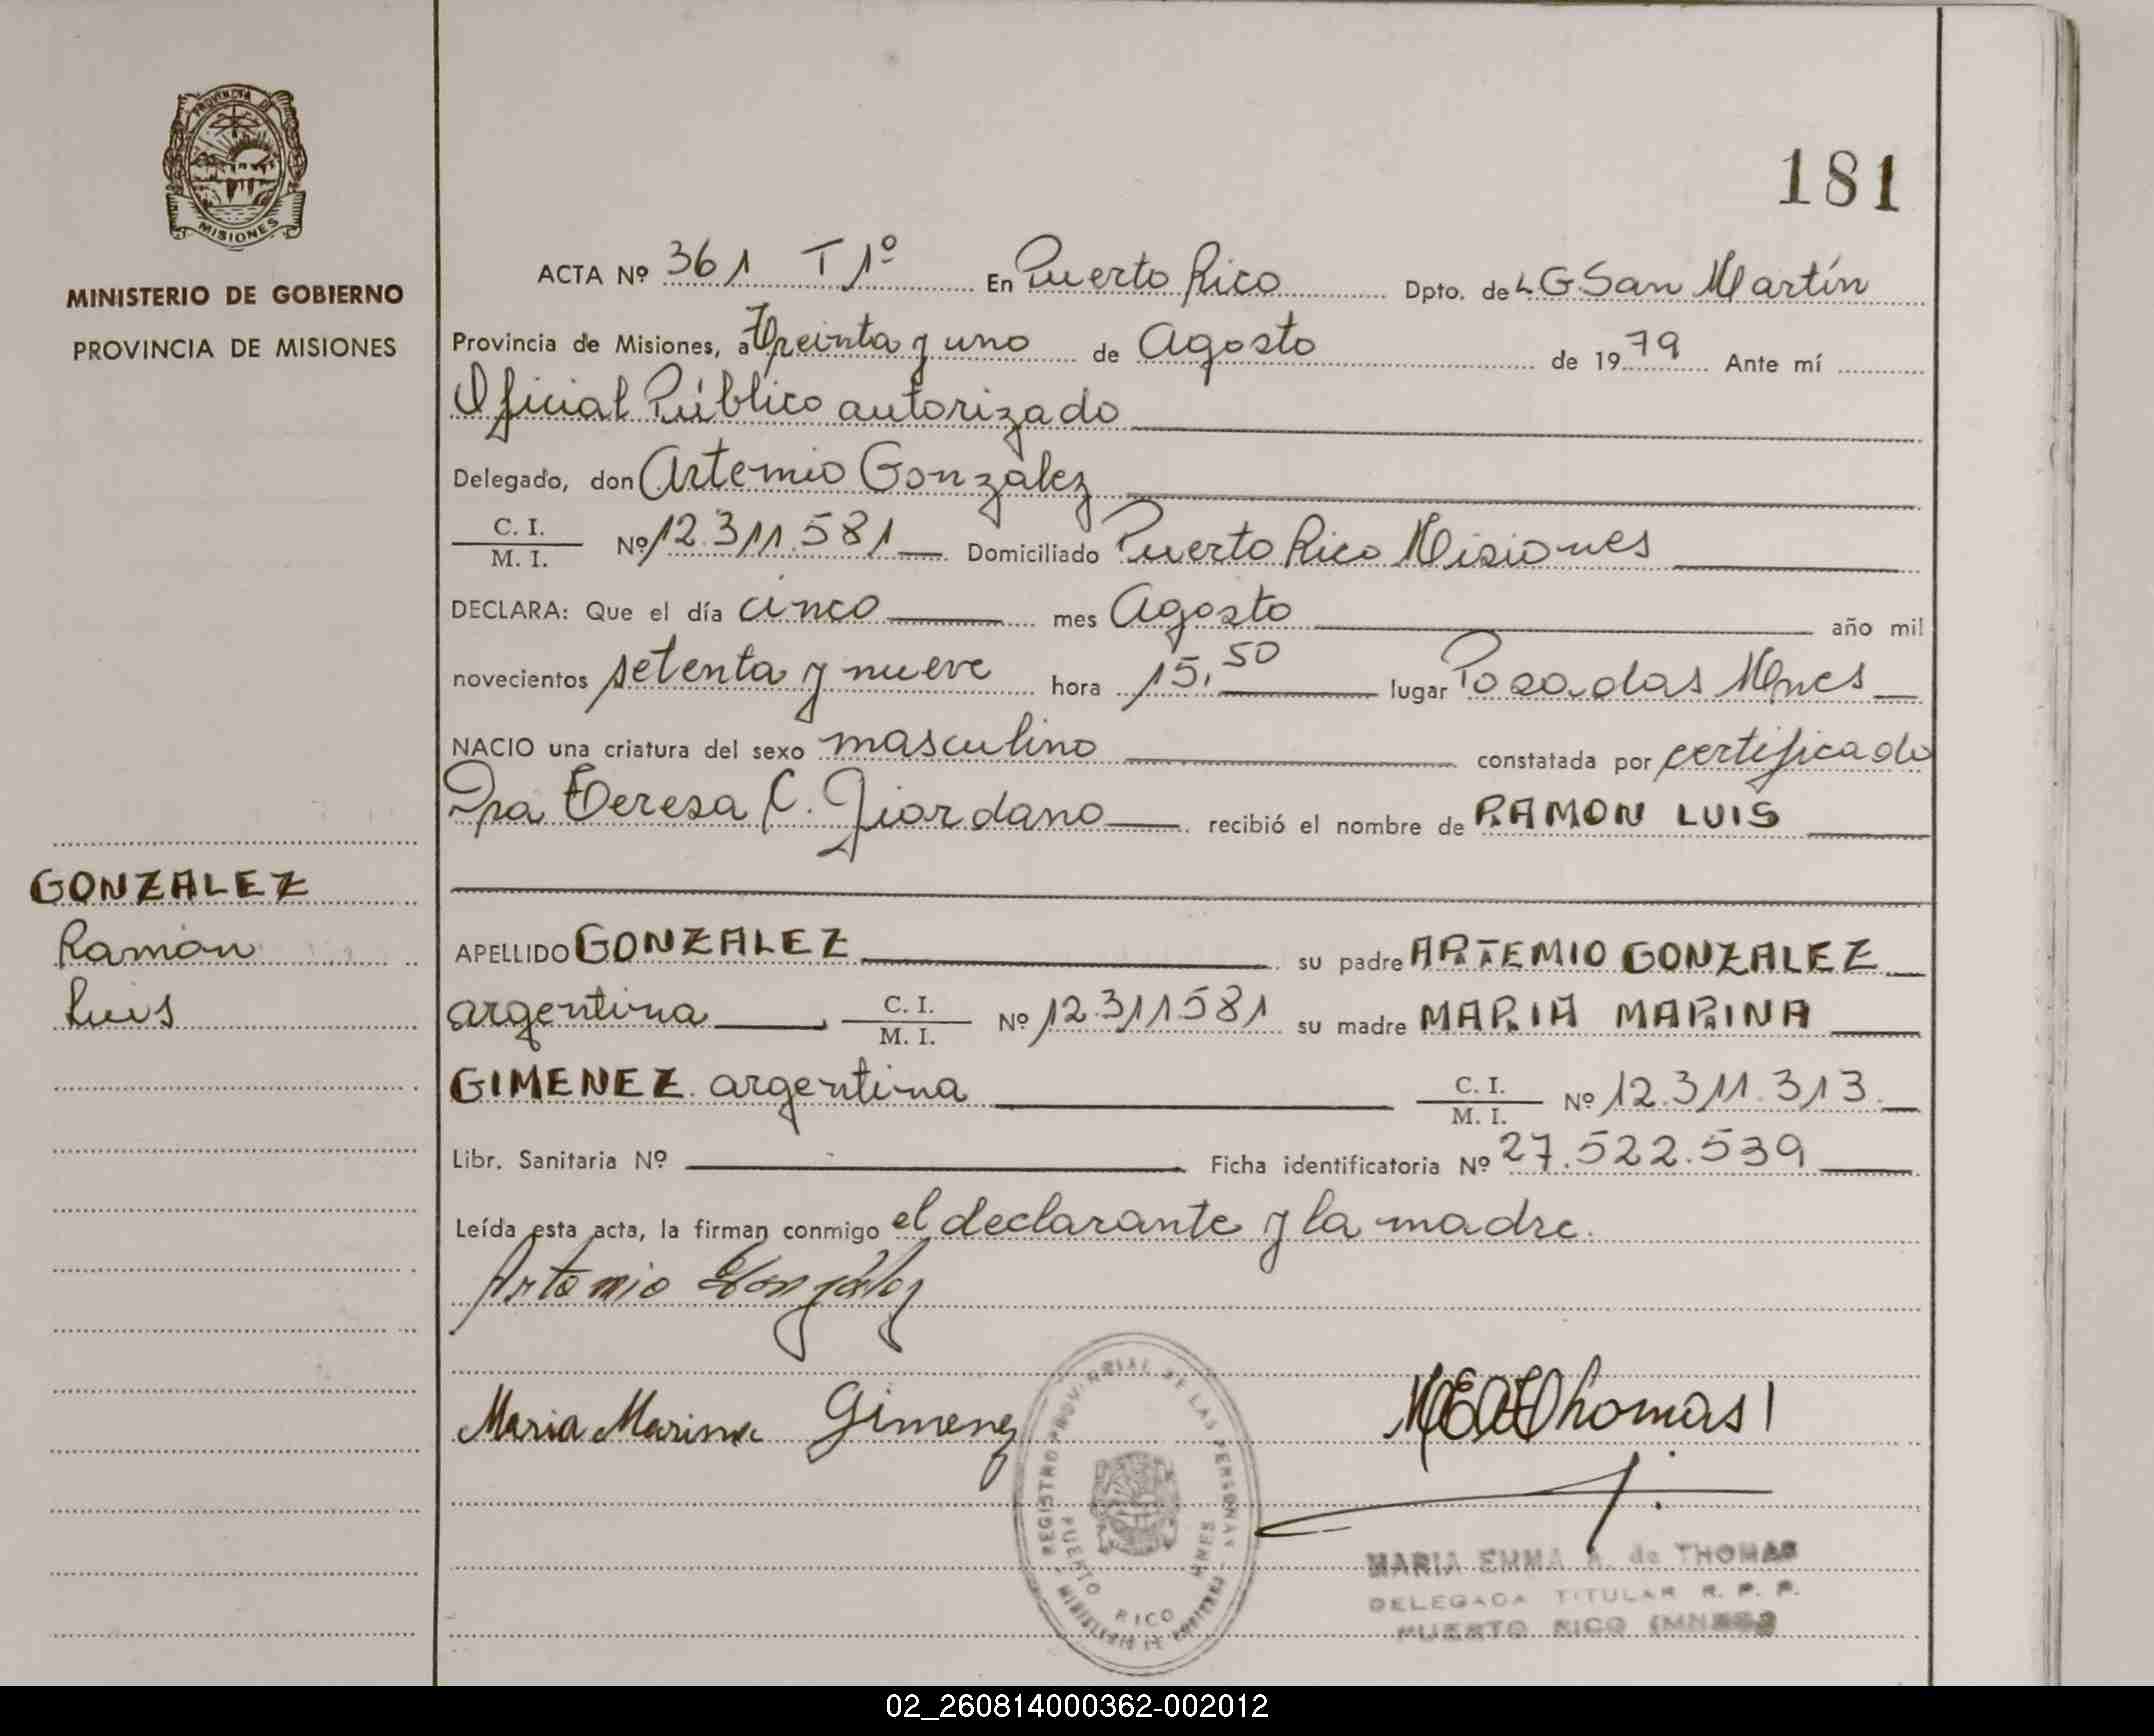 PROVINCIA DE
MISIONES
MINISTERIO DE GOBIERNO
PROVINCIA DE MISIONES
GONZALEZ
Ramón
Luis
181
ACTA Nº 361 T 1º En Puerto Rico Dpto. de L G San Martín
Provincia de Misiones, a Treinta y uno de Agosto de 1979 Ante mí
Oficial Público autorizado
Delegado, don Artemio González
C. I.
M. I. Nº 12.311.581 Domiciliado Puerto Rico Misiones
DECLARA: Que el día cinco mes Agosto año mil
novecientos setenta y nueve hora 15,50 lugar Posadas Mnes
NACIO una criatura del sexo masculino constatada por certificado
Dra Teresa C. Giordano recibió el nombre de RAMON LUIS
APELLIDO GONZALEZ su padre ARTEMIO GONZALEZ
argentina C. I.
M. I. Nº 12.311581 su madre MARIA MARINA
GIMENEZ argentina C. I.
M. I. Nº 12.311.313.
Libr. Sanitaria Nº Ficha identificatoria Nº 27.522.539
Leída esta acta, la firman conmigo el declarante y la madre.
Artemio González
Maria Marina Gimenez
Thomas
REGISTRO PROVINCIAL DE LAS PERSONAS
PUERTO RICO MNES
MINISTERIO DE GOBIERNO
MARIA EMMA A. de THOMAS
DELEGADA TITULAR R. P. P.
PUERTO RICO (MNES)
02_260814000362-002012